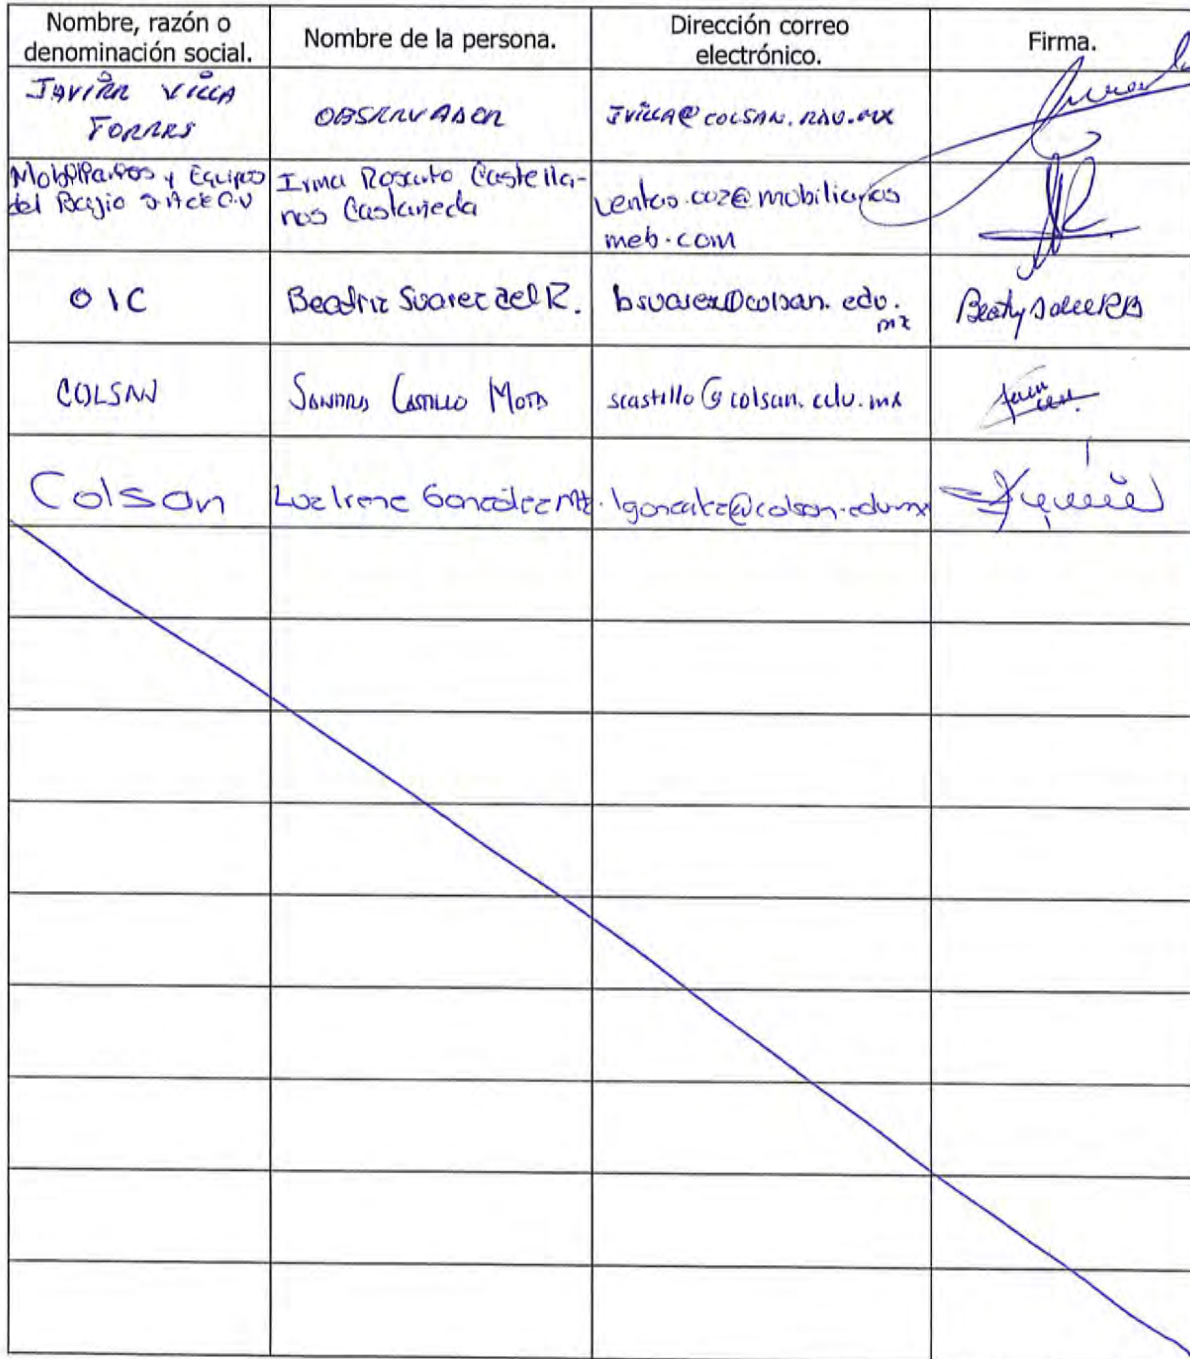 Nombre, razón o
denominación social.
Nombre de la persona.
Dirección correo
electrónico.
Firma.
JAVIER VILLA
TORRES
OBSERVADOR
JVILLA@COLSAN.EDU.MX
y Equipos
del Bajio
Irma Rosario Castella-
nos Castañeda
ventas.coz@mobiliarios
meb.com
OIC
Beatriz Suarez del R.
bsuarez@colsan.edu.
mx
COLSAN
SANDRA CASTILLO MOTA
scastillo@colsan.edu.mx
Colsan
Luz Irene González Mtz.
lgonzalez@colsan.edu.mx